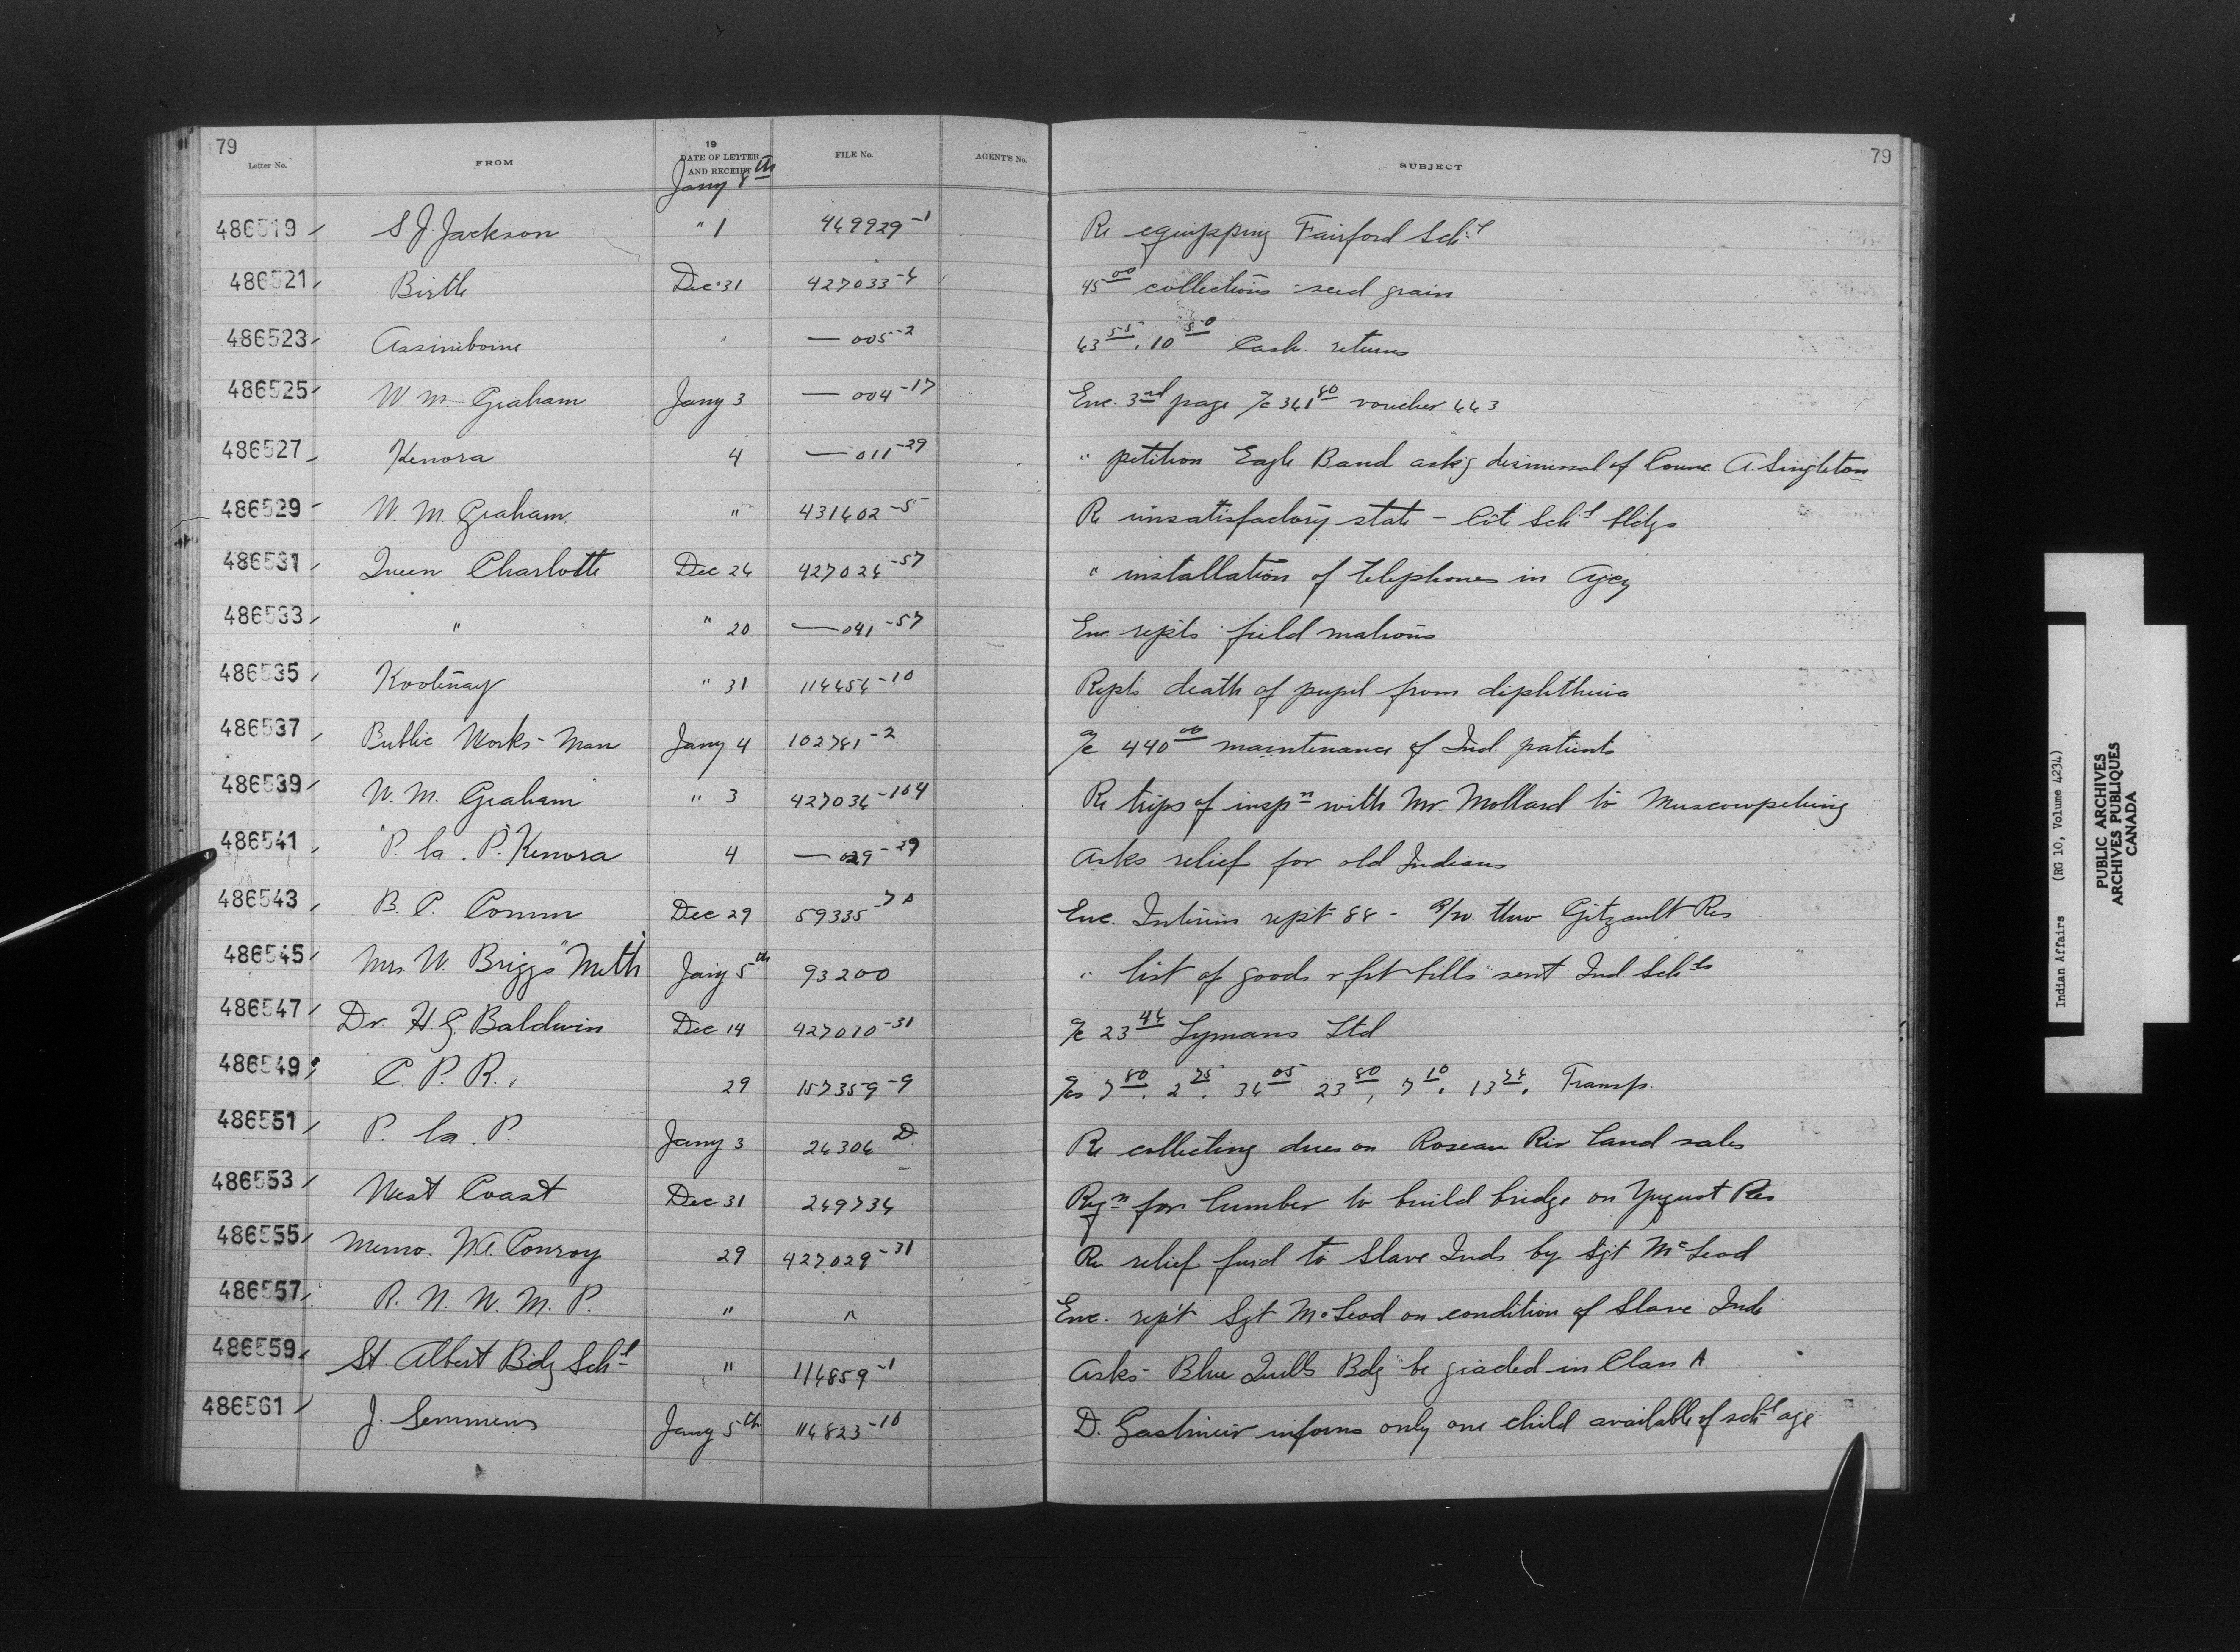 79
79
Letter No. FROM 19 DATE OF LETTER AND RECEIPT FILE No. AGENT'S No. SUBJECT
Jany 8th
486519 S J. Jackson " 1 449929-1 Re equipping Fairford Schl
486521 Birtle Dec 31 427033-4 45.00 collections seed grain
486523 Assiniboine " — 005-2 43.55, 10.50 Cash returns
486525 W. M. Graham Jany 3 — 004-17 Enc. 3rd page a/c 341.80 voucher 443
486527 Kenora 4 — 011-29 " petition Eagle Band ask'g dismissal of Counc A. Singleton
486529 W. M. Graham " 431402-5 Re unsatisfactory state - Cote Schl bldgs
486531 Queen Charlotte Dec 24 427024-57 " installation of telephones in Agcy
486533 " " 20 — 041-57 Enc repts field matrons
486535 Kootenay " 31 114454-10 Repts death of pupil from diphtheria
486537 Public Works - Man Jany 4 102781-2 a/c 440.00 maintenance of Ind. patients
486539 W. M. Graham " 3 427034-104 Re trips of inspn with Mr. Mollard to Muscowpetung
486541 P. la. P. Kenora 4 — 029-29 Asks relief for old Indians
486543 B. C. Comm Dec 29 59335 Enc. Interim rept 88 - R/W. thro Gitzault Res
486545 Mrs W. Briggs "Meth" Jany 5th 93200 " list of goods & frt bills sent Ind Schls
486547 Dr. H. G. Baldwin Dec 14 427010-31 a/c 23.44 Lymans Ltd
486549 C. P. R. 29 157359-9 a/cs 7.80, 2.25, 34.05 23.80, 7.10, 13.24, Transp.
486551 P. la. P. Jany 3 24304 D. Re collecting dues on Roseau Riv Land sales
486553 West Coast Dec 31 249734 Reqn for lumber to build bridge on Yuquot Res
486555 Memo. H.A. Conroy 29 427029-31 Re relief furd to Slave Inds by Sgt McLeod
486557 R. N. W. M. P. " " Enc. rept Sgt McLeod on condition of Slave Inds
486559 St. Albert Bdg Schl " 114859-1 Asks - Blue Quills Bdg be graded in Class A
486561 J. Semmens Jany 5th 114823-10 D. informs only one child available of schl age
Indian Affairs (RG 10, Volume 4234)
PUBLIC ARCHIVES
ARCHIVES PUBLIQUES
CANADA